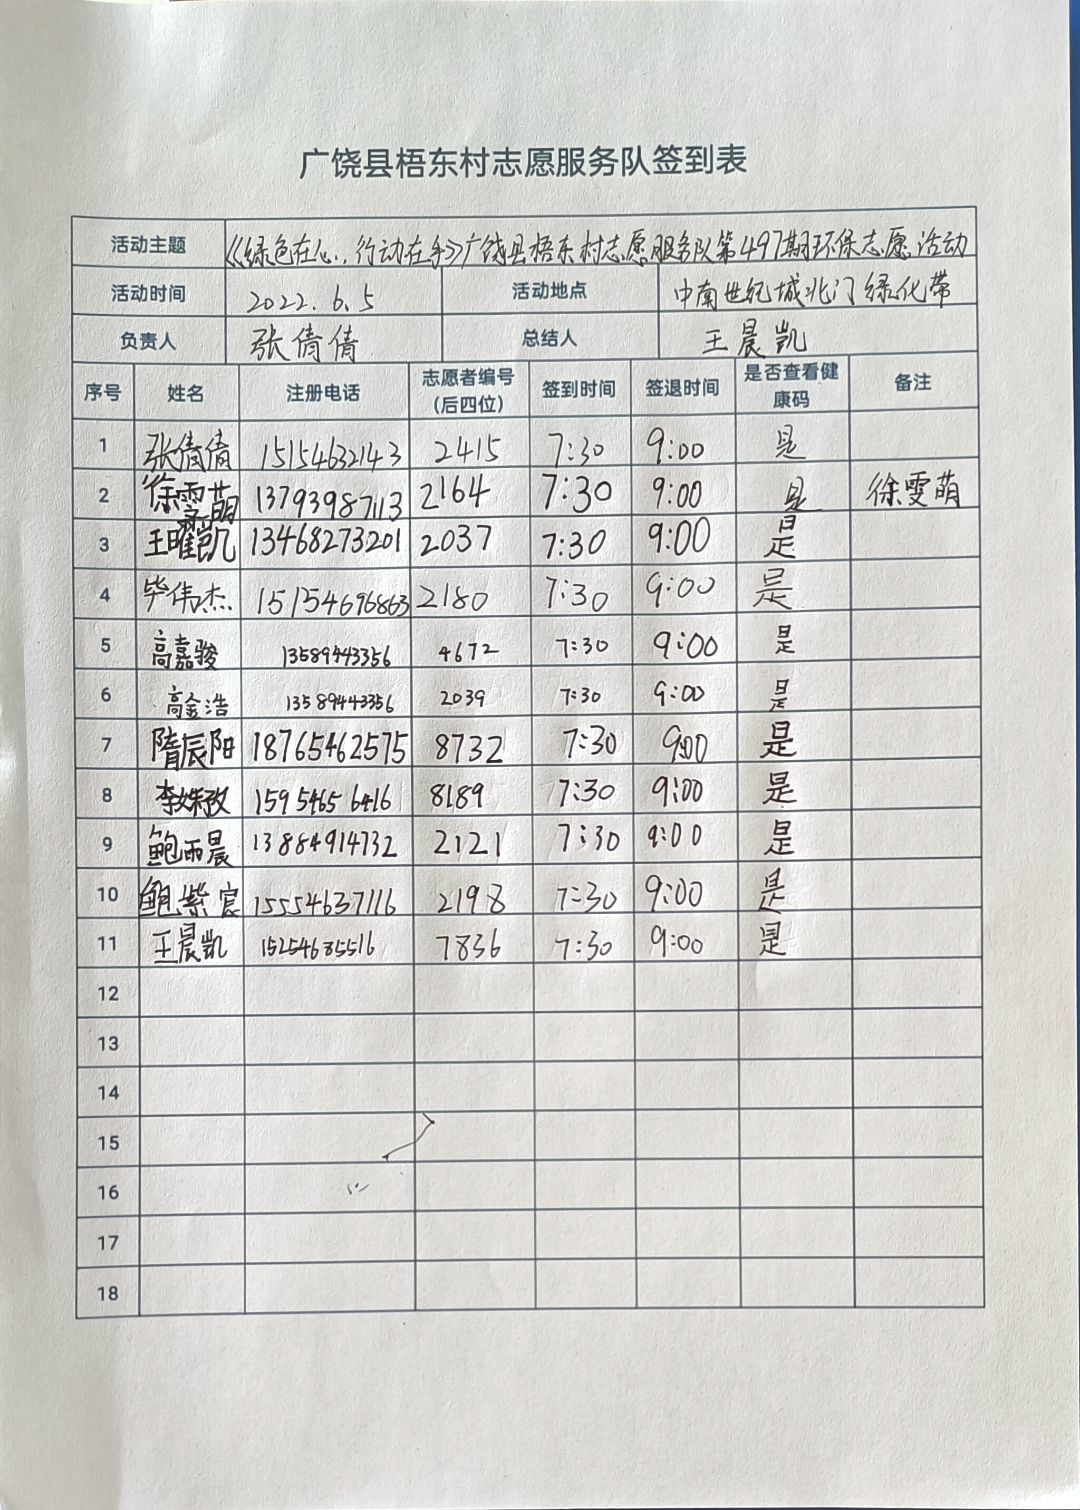 广饶县梧东村志愿服务队签到表
活动主题 《绿色在心,行动在手》广饶县梧东村志愿服务队第497期环保志愿活动
活动时间 2022.6.5 活动地点 中南世纪城北门绿化带
负责人 张倩倩 总结人 王晨凯
序号 姓名 注册电话 志愿者编号(后四位) 签到时间 签退时间 是否查看健康码 备注
1 张倩倩 15154632143 2415 7:30 9:00 是
2 徐雯萌 13793987113 2164 7:30 9:00 是 徐雯萌
3 王曜凯 13468273201 2037 7:30 9:00 是
4 毕伟杰 15154696863 2180 7:30 9:00 是
5 高嘉骏 13589443356 4672 7:30 9:00 是
6 高金浩 13589443356 2039 7:30 9:00 是
7 隋辰阳 18765462575 8732 7:30 9:00 是
8 李姝孜 15954656416 8189 7:30 9:00 是
9 鲍雨晨 13884914732 2121 7:30 9:00 是
10 鲍紫宸 15554637116 2198 7:30 9:00 是
11 王晨凯 15254685516 7836 7:30 9:00 是
12
13
14
15
16
17
18